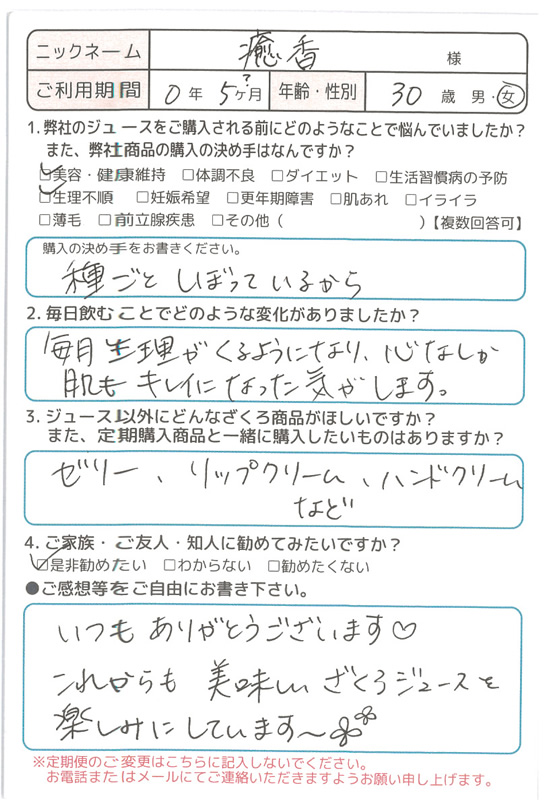 ニックネーム 癒香 様
ご利用期間 0年 5?ヶ月 年齢・性別 30 歳 男・女
1.弊社のジュースをご購入される前にどのようなことで悩んでいましたか?
また、弊社商品の購入の決め手はなんですか?
□美容・健康維持 □体調不良 □ダイエット □生活習慣病の予防
□生理不順 □妊娠希望 □更年期障害 □肌あれ □イライラ
□薄毛 □前立腺疾患 □その他( )【複数回答可】
購入の決め手をお書きください。
種ごと しぼっているから
2.毎日飲むことでどのような変化がありましたか?
毎月生理がくるようになり、心なしか
肌も キレイになった気がします。
3.ジュース以外にどんなざくろ商品がほしいですか?
また、定期購入商品と一緒に購入したいものはありますか?
ゼリー、リップクリーム、ハンドクリーム
など
4.ご家族・ご友人・知人に勧めてみたいですか?
□是非勧めたい □わからない □勧めたくない
●ご感想等をご自由にお書き下さい。
いつも ありがとうございます♡
これからも 美味しい ざくろジュースを
楽しみにしています〜
※定期便のご変更はこちらに記入しないでください。
お電話またはメールにてご連絡いただきますようお願い申し上げます。